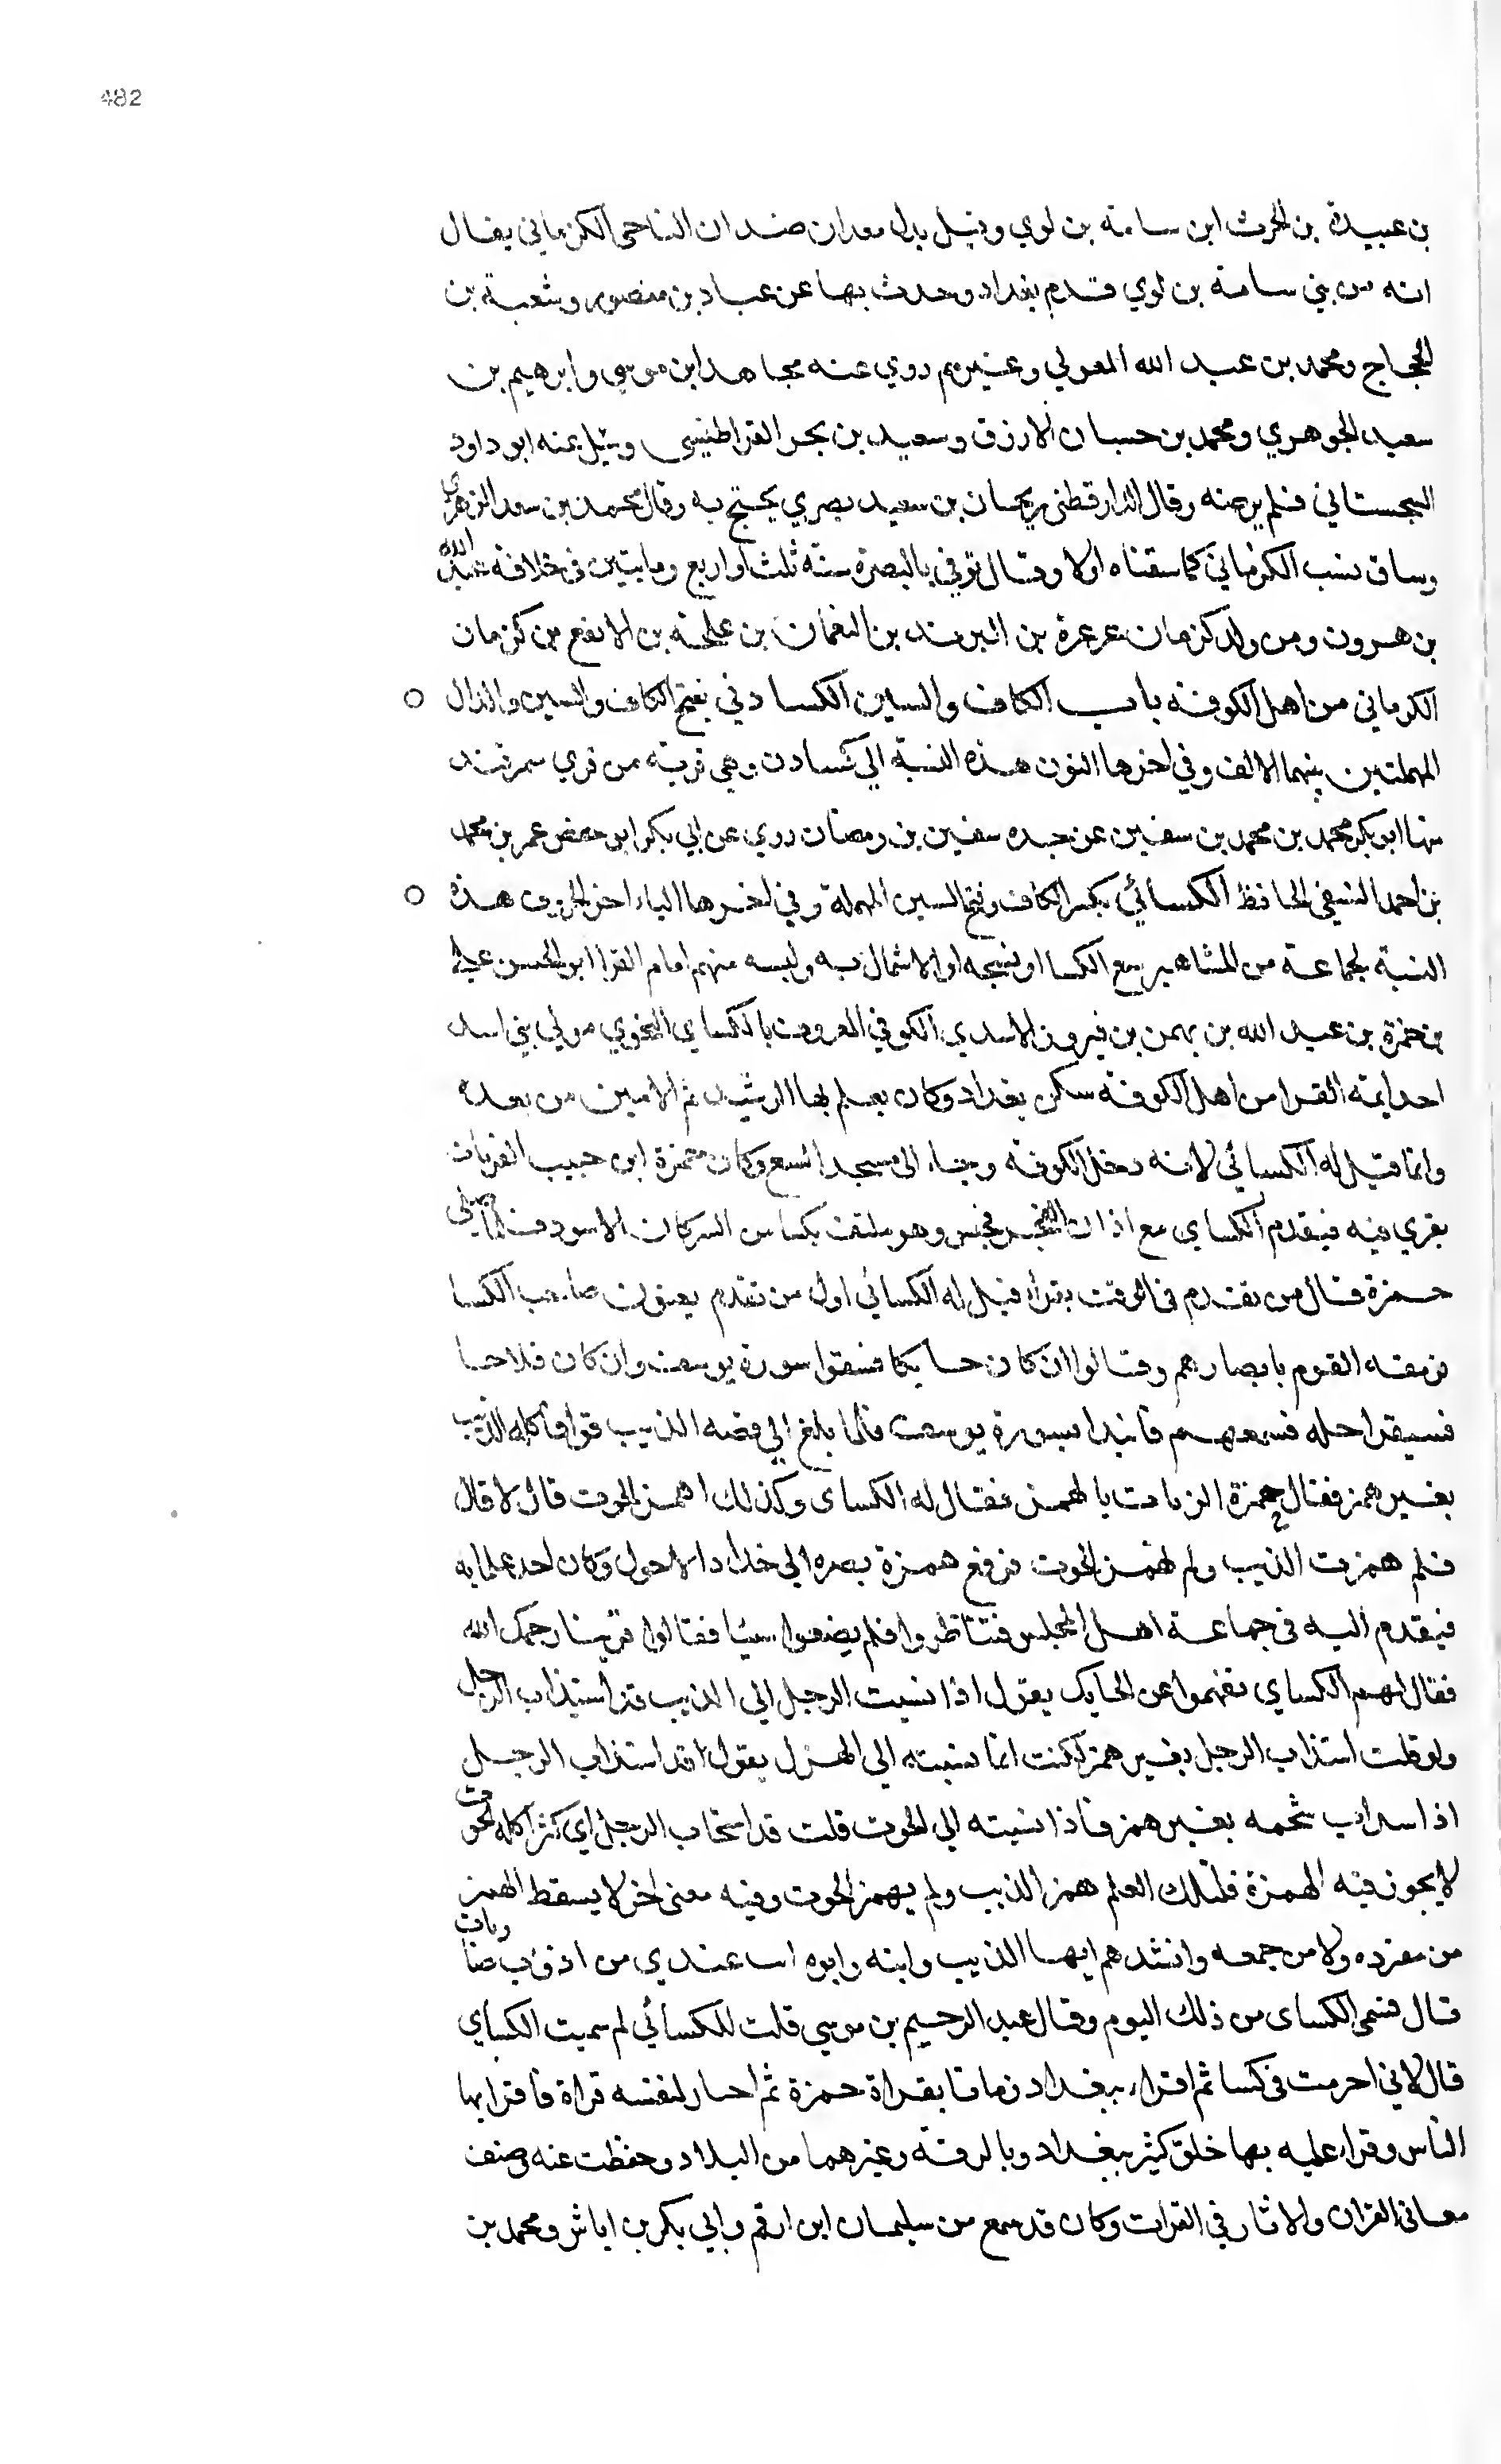 482
بن عبيدة بن الحرث ابن سامة بن لوي وقيل بدل معدان صندان الناحي الكزماني يقال
انه من بني سامة بن لوي قدم بغداد وحدث بها عن عباد بن منصور وشعبة بن
الحجاج ومحمد بن عبد الله المعولي وغيرهم روي عنه مجاهد ابن موسي وابرهيم بن
سعيد الجوهري ومحمد بن حسان الازرق وسعيد بن بحر القراطيسي وسئل عنه ابو داود
السجستاني فلم يرضه وقال الدارقطني ريحان بن سعيد بصري يحتج به وقال محمد بن سعد الزهري
وساق نسب الكزماني كما سقناه اولا وقال توفي بالبصرة سنة ثلث او اربع ومايتين في خلافة عبد الله
بن هرون ومن ولد كزمان عرعرة بن البرند بن النعمان بن علجة بن الاقفع بن كزمان
الكرماني من اهل الكوفة باب الكاف والسين الكسادني بفتح الكاف والسين والدال
المهملتين بينهما الالف وفي اخرها النون هذه النسبة الي كسادن وهي قرية من قري سمرقند
منها ابو بكر محمد بن محمد بن سفين عن جده سفين بن رمضان روي عن ابي بكر ابو حفص عمر بن محمد
بن احمد النسفي الحافظ الكسائي بكسر الكاف وفتح السين المهملة وفي اخرها الياء اخر الحروف هذه
النسبة لجماعة من المشاهير ببيع الكسا او نسجه او الاشتمال به ولبسه منهم امام القرا ابو الحسن علي
بن حمزة بن عبد الله بن بهمن بن فيروز الاسدي الكوفي المعروف بالكساي النحوي مولي بني اسد
احد ايمة القرا من اهل الكوفة سكن بغداد وكان يعلم بها الرشيد ثم الامين من بعده
وانما قيل له الكسائي لانه دخل الكوفة وجاء الى مسجد السبيع وكان حمزة ابن حبيب الزيات
يقري فيه فيقدم الكساي مع اذان الفجر فجلس وهو ملتف بكسا من البركان الاسود فلما صلى
حمزة قال من تقدم في الوقت يقراء قيل له الكسائي اول من تقدم يعنون صاحب الكسا
فرمقه القوم بابصارهم وقالوا ان كان حايكا فسيقرا سورة يوسف وان كان فلاحا
فسيقرا طه فسمعهم فابتدا بسورة يوسف فلما بلغ الي قصة الذيب قرا فاكله الذيب
بغير همز فقال حمزة الزيات بالهمز فقال له الكساى وكذلك اهمز الحوت قال لا قال
فلم همزت الذيب ولم تهمز الحوت فرفع حمزة بصره الى خلاد الاحول وكان احد غلمانه
فتقدم اليه في جماعة اهل المجلس فتناظروا فلم يصنعوا شيا فقالوا افدنا رحمك الله
فقال لهم الكساي تفهموا عن الحايك يقول اذا نسبت الرجل الي الذيب قد استذاب الرجل
ولو قلت استذاب الرجل بغير همز لكنت انما نسبته الي الهزل يقول قد استذاب الرجل
اذا استذاب شحمه بغير همز فاذا نسبته الي الحوت قلت قد استحات الرجل اي كثر اكله الحوت
لا يجوز فيه الهمزة فلتلك العلة همز الذيب ولم يهمز الحوت وفيه معنى اخر لا يسقط الهمز
من مفرده ولا من جمعه وانشدهم ايها الذيب وابنه وابوه انت عندي من اذؤب ضاريات
قال فسمي الكساى من ذلك اليوم وقال عبد الرحيم بن موسي قلت للكسائي لم سميت الكساي
قال لاني احرمت في كسا ثم اقراء ببغداد زمانا بقراة حمزة ثم اختار لنفسه قراة فاقرا بها
الناس وقراء عليه بها خلق كثير ببغداد وبالرقة وغيرهما من البلاد وحفظت عنه وصنف
معاني القران والاثار في القرات وكان قد سمع من سليمان ابن ارقم وابي بكر بن اياش ومحمد بن